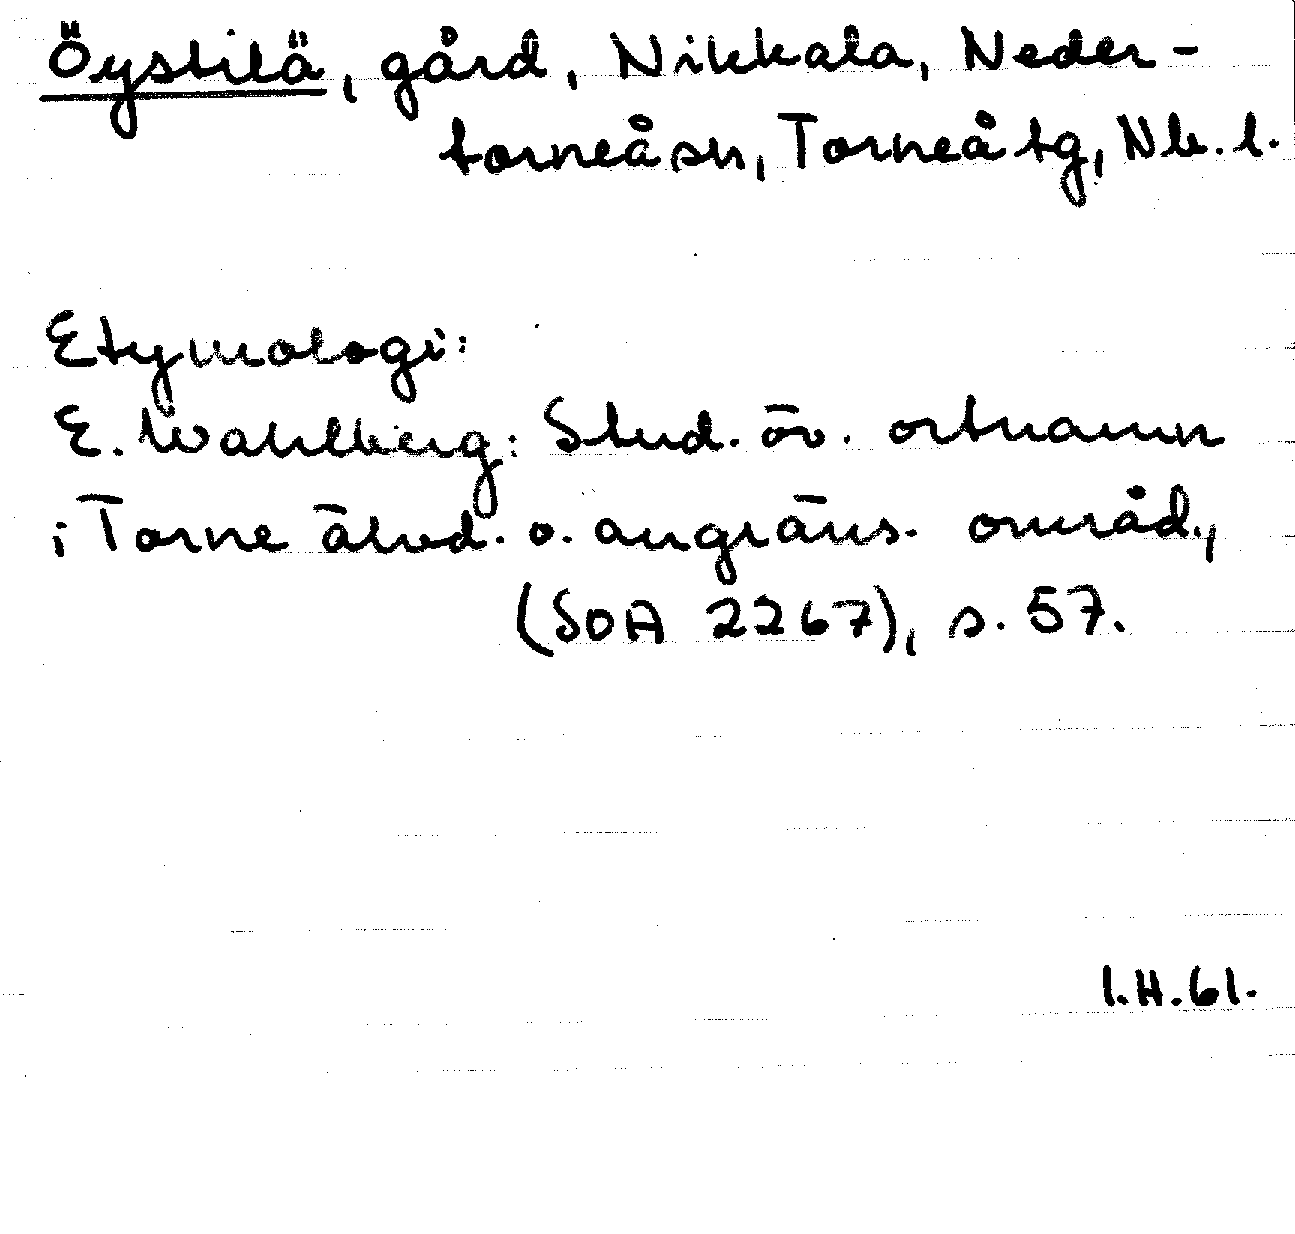 Öystilä, gård, Nikkala, Neder-
torneå sn, Torneå tg, Nb. l.
Etymologi:
E. Wahlberg: Stud. öv. ortnamn
i Torne älvd. o. angräns. områd.,
(SOA 2267), s. 57.
I.H.61.